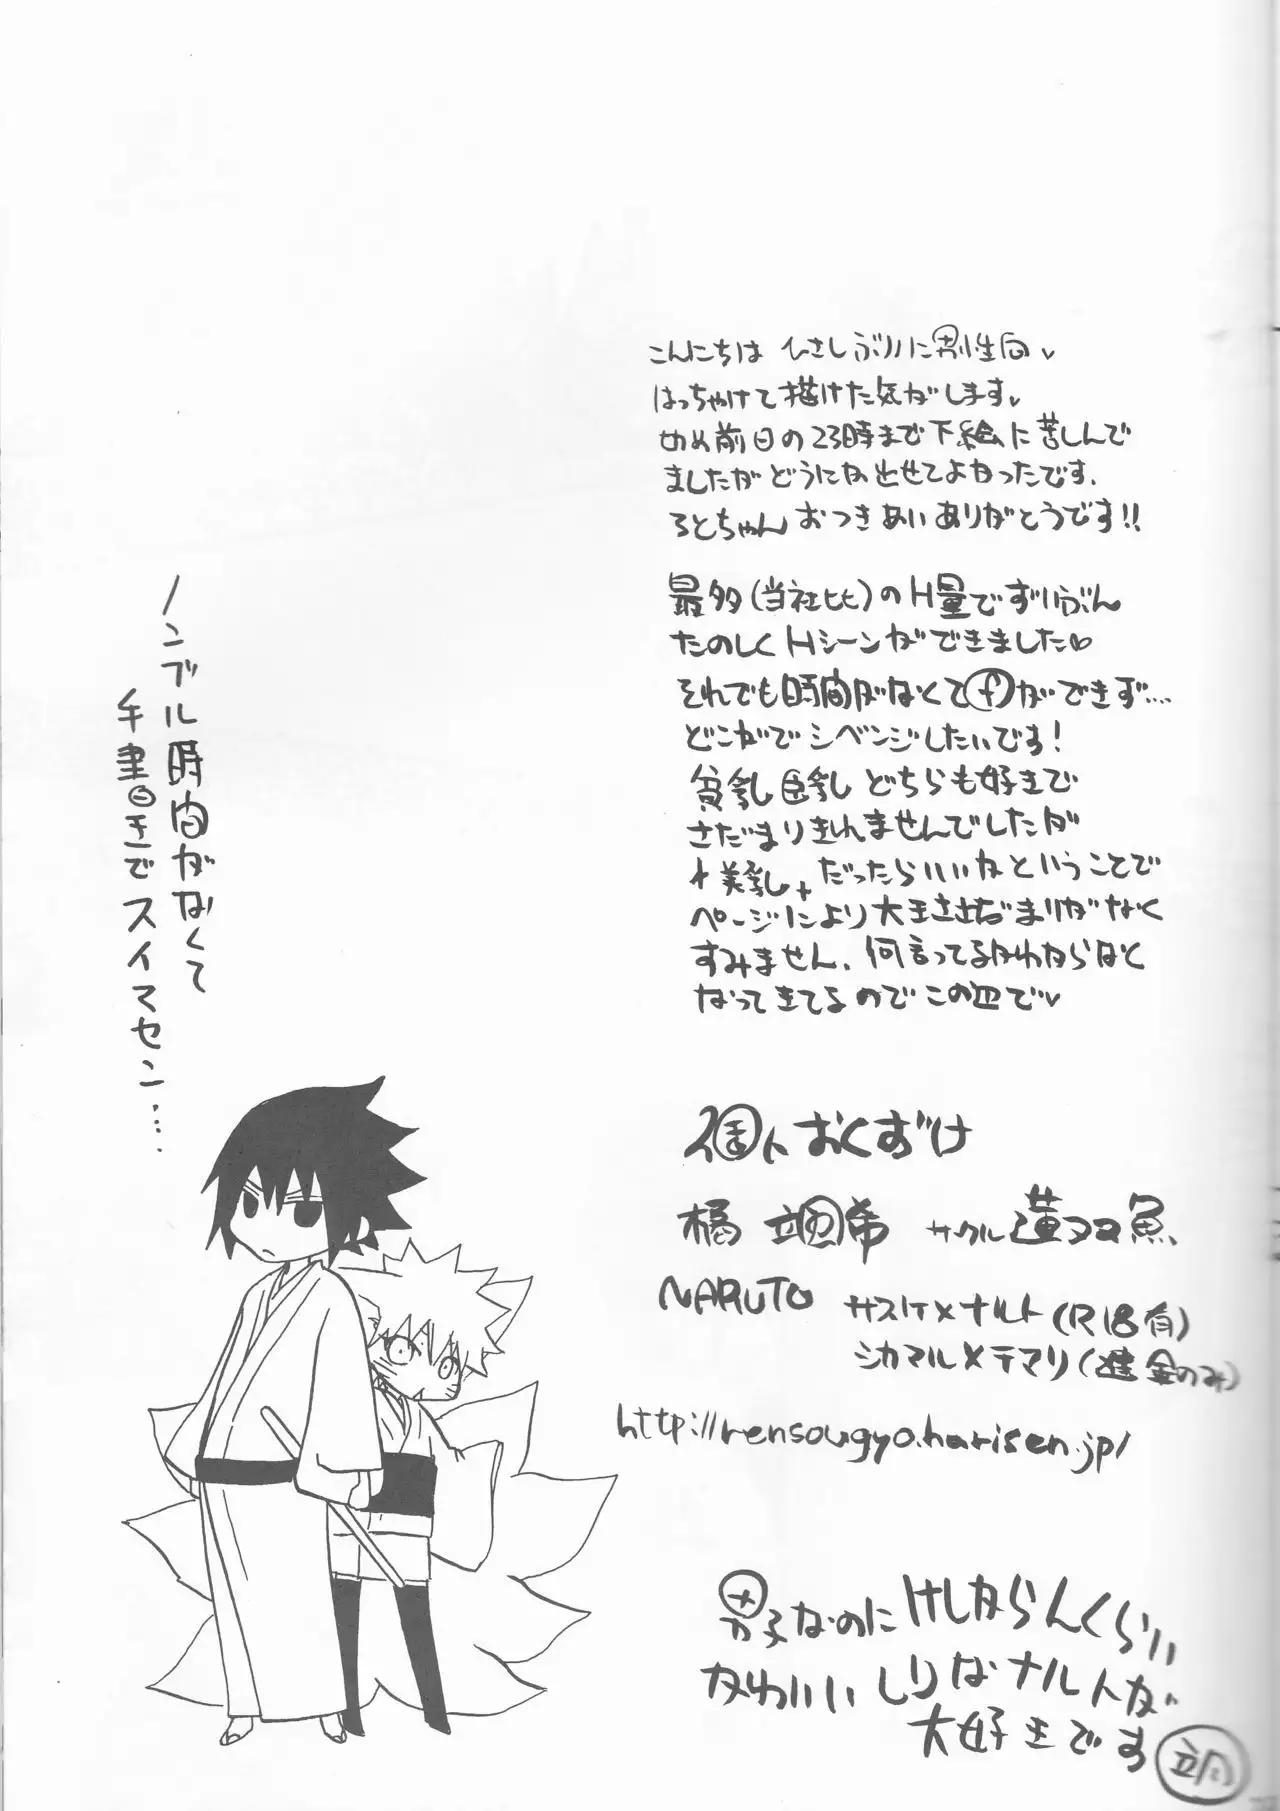 こんにちは ひさしぶりに男性向♥
はっちゃけて描けた気がします♥
〆め前日の23時まで下絵に苦しんで
ましたがどうにか出せてよかったです、
るとちゃんおつきあいありがとうです!!
最多(当社比)のH量でずいぶん
たのしくHシーンができました♡
それでも時間がなくて(汁)ができず…
どこかでリベンジしたいです!
貧乳巨乳どちらも好きで
さだまりきれませんでしたが
美乳 だったらいいねということで
ページにより大きささだまりがなく
すみません、何言ってるかわからなく
なってきてるのでこの辺で♥
ノンブル時間がなくて
手書きでスイマセン…
個人おくずけ
橘 希 サークル 蓮双魚
NARUTO サスケ×ナルト(R18有)
シカマル×テマリ(健全のみ)
http://rensougyo.harisen.jp/
男子なのにけしからんくらい
かわいいしりなナルトが
大好きです